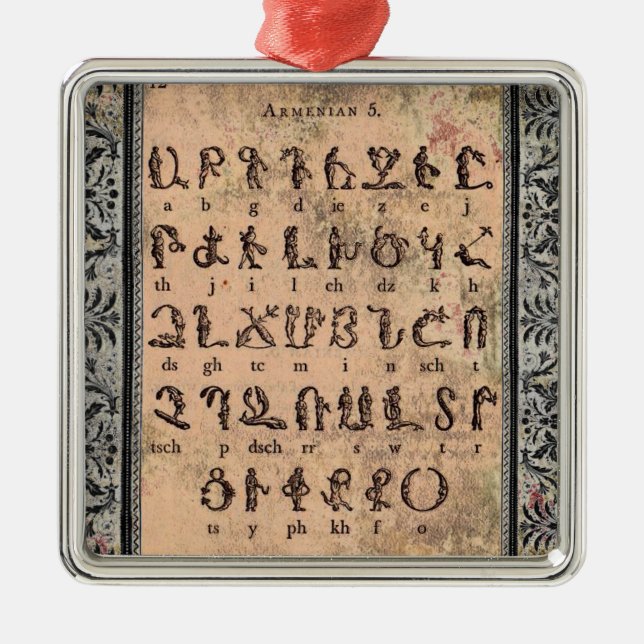 ARMENIAN 5.
Ա Բ Գ Դ Ե Զ Է Ը
a b g d ie z e j
Թ Ժ Ի Լ Խ Ծ Կ Հ
th j i l ch dz k h
Ձ Ղ Ճ Մ Յ Ն Շ Ո
ds gh tc m i n sch t
Չ Պ Ջ Ռ Ս Վ Տ Ր
tsch p dsch rr s w t r
Ց Ւ Փ Ք Ֆ Օ
ts y ph kh f o